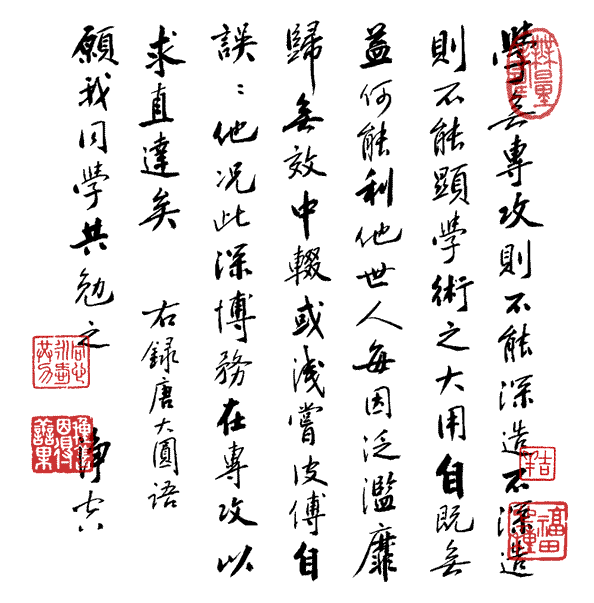 學無專攻則不能深造不深造
則不能顯學術之大用自既無
益何能利他世人每因泛濫靡
歸無效中輟或淺嘗皮傅自
誤:他況此深博務在專攻以
求直達矣 右錄唐大圓語
願我同學共勉之 淨空
福田